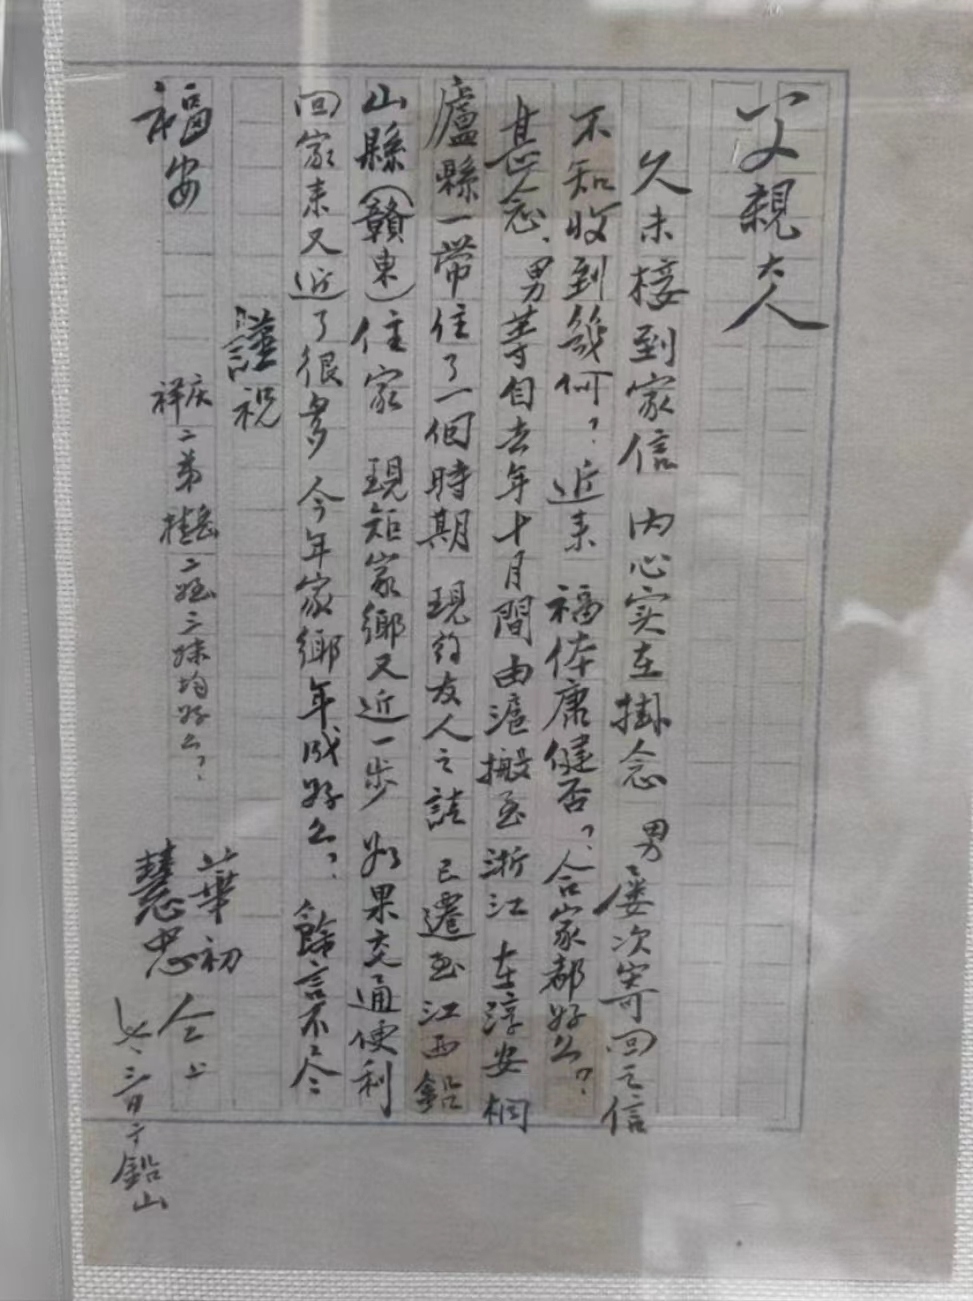 父親大人
久未接到家信 内心实在掛念 男屡次寄回之信
不知收到幾何？近来 福体康健否？合家都好么？
甚念、男等自去年十月間由滬搬至浙江 在淳安桐
廬縣一帶住了一個時期 現約友人之請 已遷至江西鉛
山縣（贛東）住家 現距家鄉又近一步 如果交通便利
回家来又近了很多 今年家鄉年成好么？餘言不尽
謹祝
福安
庆祥二弟 二姪三妹均好么？
華初
慧忠 仝上
七、三日于鉛山